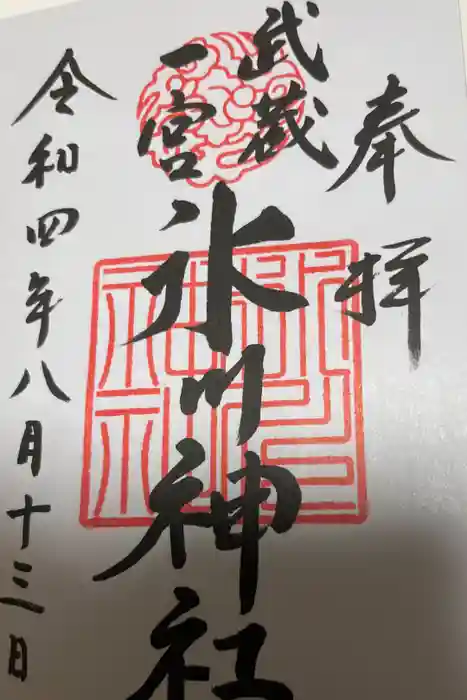 奉拝
武蔵
一宮
氷川神社
令和四年八月十三日